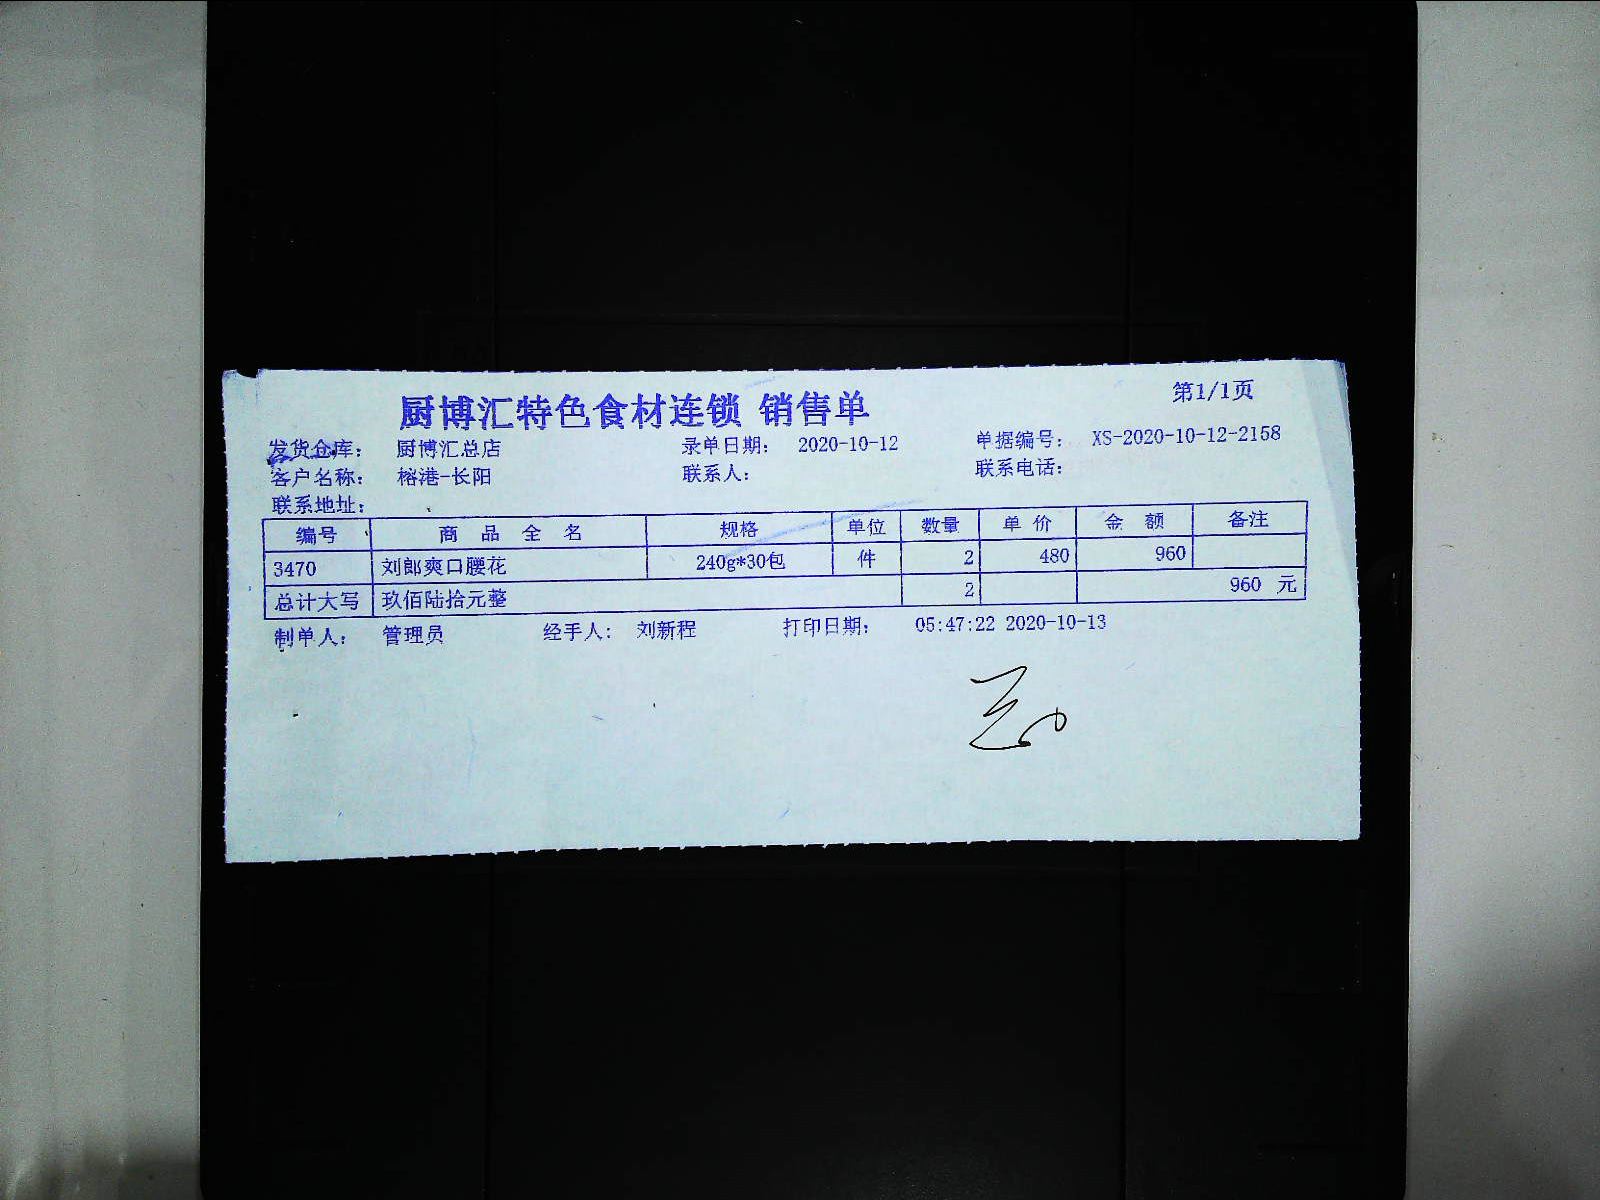 第1/1页
厨博汇特色食材连锁 销售单
发货仓库： 厨博汇总店 录单日期： 2020-10-12 单据编号： XS-2020-10-12-2158
客户名称： 榕港-长阳 联系人： 联系电话：
联系地址：
编号 商品全名 规格 单位 数量 单价 金额 备注
3470 刘郎爽口腰花 240g*30包 件 2 480 960
总计大写 玖佰陆拾元整 2 960 元
制单人： 管理员 经手人： 刘新程 打印日期： 05:47:22 2020-10-13